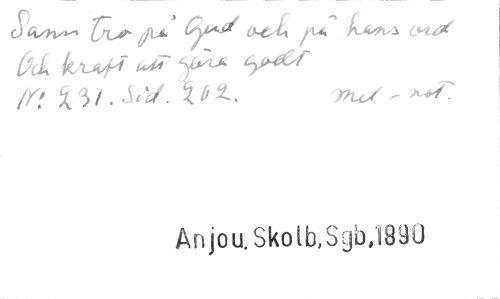 Sann tro på Gud och på hans ord
Och kraft att göra godt
N: 231. Sid. 202. mel-not.
Anjou, Skolb, Sgb, 1890